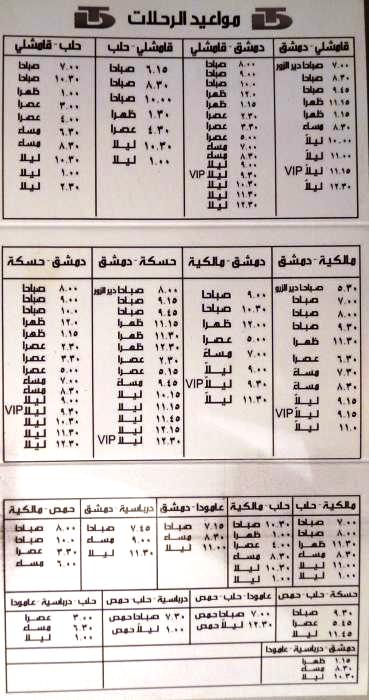 مواعيد الرحلات
قامشلي - دمشق
٧.٠٠ صباحا دير الزور
٨.٣٠ صباحا
٩.٤٥ صباحا
١١.١٥ ظهرا
١.١٥ عصرا
٨.٣٠ مساء
١٠.٠٠ ليلاً
١١.٠٠ ليلاً
١١.١٥ ليلاً VIP
١٢.٣٠ ليلاً
دمشق - قامشلي
٨.٠٠ صباحا
٩.٠٠ صباحا
١٠.٠ صباحا
١.١٥ ظهرا
٢.٣٠ عصرا
٣.٣٠ عصرا
٥.٠٠ عصرا
٧.٠٠ مساء
٨.٣٠ مساء
٩.٠٠ ليلا
٩.٣٠ ليلا VIP
١٠.٣٠ ليلا
١١.٣٠ ليلا
١٢.٣٠ ليلا
قامشلي - حلب
٦.١٥ صباحا
٨.٣٠ صباحا
١٠.٠٠ صباحا
١.٣٠ ظهرا
٤.٣٠ عصرا
١٠.٣٠ ليلاً
١.٠٠ ليلاً
حلب - قامشلي
٧.٠٠ صباحا
١٠.٣٠ صباحا
١.٠٠ ظهرا
٣.٠٠ عصرا
٤.٠٠ عصرا
٦.٣٠ مساء
٨.٣٠ مساء
١٠.٣٠ ليلا
١.٠٠ ليلا
٢.٣٠ ليلا
مالكية - دمشق
٥.٣٠ صباحا دير الزور
٧.٠٠ صباحا
٨.٠٠ صباحا
٩.٣٠ صباحا
١١.٣٠ ظهرا
٦.٣٠ عصرا
٧.٣٠ مساءً
٨.٣٠ مساءً
٩.١٥ ليلاً
٩.١٥ ليلاً VIP
١١.٠ ليلاً
دمشق - مالكية
٩.٠٠ صباحا
١٠.٣٠ صباحا
١٢.٠٠ ظهرا
٥.٠٠ عصرا
٧.٠٠ مساءً
٩.٠٠ ليلاً
٩.٣٠ ليلاً VIP
١١.٣٠ ليلاً
حسكة - دمشق
٨.٠٠ صباحا دير الزور
٩.١٥ صباحا
٩.٤٥ صباحا
١١.١٥ ظهرا
١١.٣٠ ظهرا
١٢.٣٠ ظهرا
٢.٣٠ عصرا
٥.١٥ عصرا
٩.٤٥ مساءً
١٠.١٥ ليلا
١١.١٥ ليلا
١١.٤٥ ليلا
١٢.١٥ ليلا
١٢.٣٠ ليلا VIP
دمشق - حسكة
٨.٠٠ صباحا
٩.٠٠ صباحا
١٠.٠ صباحا
١٢.٠ ظهرا
١.١٥ ظهرا
٢.٣٠ عصرا
٣.٣٠ عصرا
٥.٠٠ عصرا
٧.٠٠ مساء
٨.٣٠ مساء
٩.٠٠ ليلا
٩.٣٠ ليلا VIP
١٠.٣٠ ليلا
١١.٣٠ ليلا
١٢.٣٠ ليلا
مالكية - حلب
٧.٠٠ صباحا
٨.٣٠ صباحا
١١.٣٠ ظهرا
٨.٣٠ مساء
١١.٠٠ ليلا
١.٠٠ ليلا
حلب - مالكية
١٠.٣٠ صباحا
١.٠٠ ظهرا
٤.٠٠ عصرا
٨.٣٠ مساء
١٠.٣٠ ليلا
١.٠٠ ليلا
عامودا - دمشق
٧.١٥ صباحا
٨.٣٠ مساء
١١.٠٠ ليلا
درباسية - دمشق
٧.٤٥ صباحا
٩.٠٠ مساء
١١.٣٠ ليلا
حمص - مالكية
٨.٠٠ صباحا
١٠.٠٠ صباحا
٣.٣٠ عصرا
٦.٠٠ مساء
حسكة - حلب - حمص
٩.٣٠ صباحا
٥.٤٥ عصرا
١١.٤٥ ليلا
عامودا - حلب - حمص
٧.٠٠ صباحا حمص
١٢.٣٠ ليلا حمص
درباسية - حلب حمص
٧.٣٠ صباحا حمص
١.٠٠ ليلا حمص
حلب - درباسية - عامودا
٣.٠٠ عصرا
٦.٣٠ مساء
١.٠٠ ليلا
دمشق - درباسية - عامودا
١.١٥ ظهرا
٨.٣٠ مساء
١٠.٣٠ ليلا